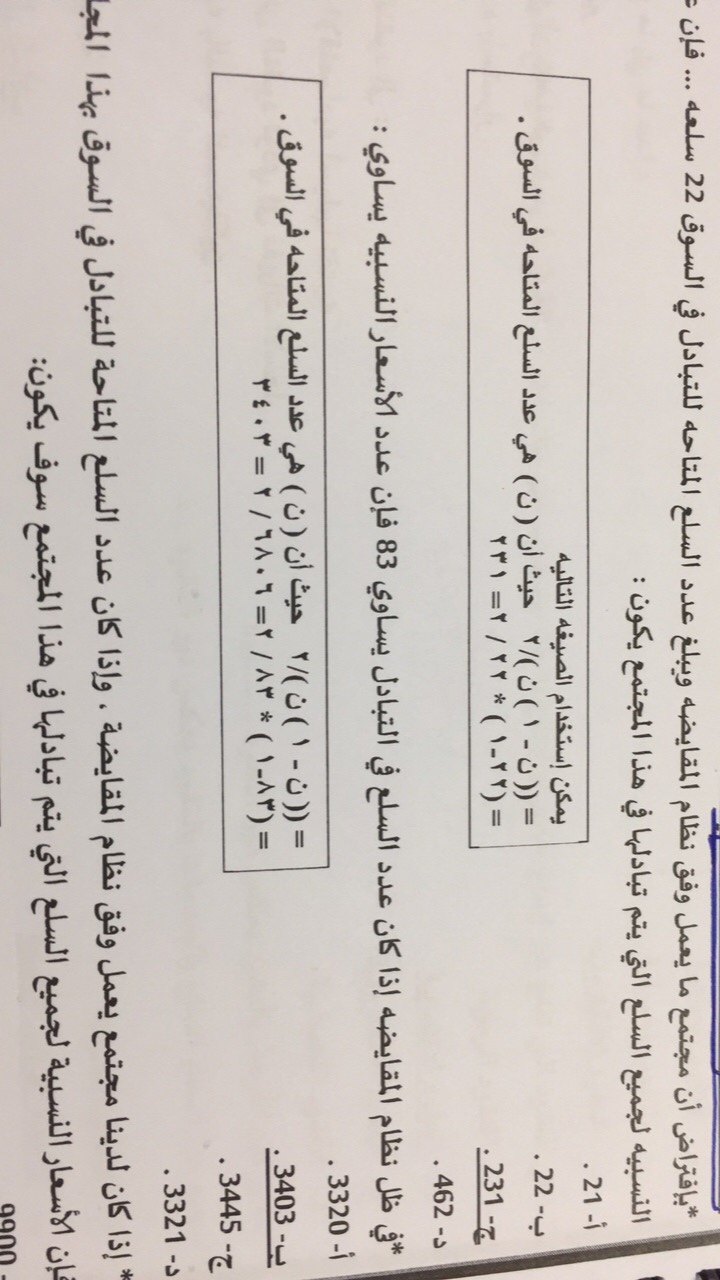 *بإفتراض أن مجتمع ما يعمل وفق نظام المقايضه ويبلغ عدد السلع المتاحه للتبادل في السوق 22 سلعه ... فإن
النسبيه لجميع السلع التي يتم تبادلها في هذا المجتمع يكون :
أ- 21 .
ب- 22 .
ج- 231 .
د- 462 .
يمكن إستخدام الصيغه التاليه
= ((ن - ١ ) ن)/٢ حيث أن ( ن ) هي عدد السلع المتاحه في السوق .
= (٢٢-١ ) * ٢٢ / ٢ = ٢٣١
*في ظل نظام المقايضه إذا كان عدد السلع في التبادل يساوي 83 فإن عدد الأسعار النسبيه يساوي :
أ- 3320 .
ب- 3403 .
ج- 3445 .
د- 3321 .
= ((ن - ١ ) ن)/٢ حيث أن ( ن ) هي عدد السلع المتاحه في السوق .
= (٨٣-١ ) * ٨٣ / ٢ = ٦٨٠٦ / ٢ = ٣٤٠٣
* إذا كان لدينا مجتمع يعمل وفق نظام المقايضة ، وإذا كان عدد السلع المتاحة للتبادل في السوق بهذا
فإن الأسعار النسبية لجميع السلع التي يتم تبادلها في هذا المجتمع سوف يكون:
9900